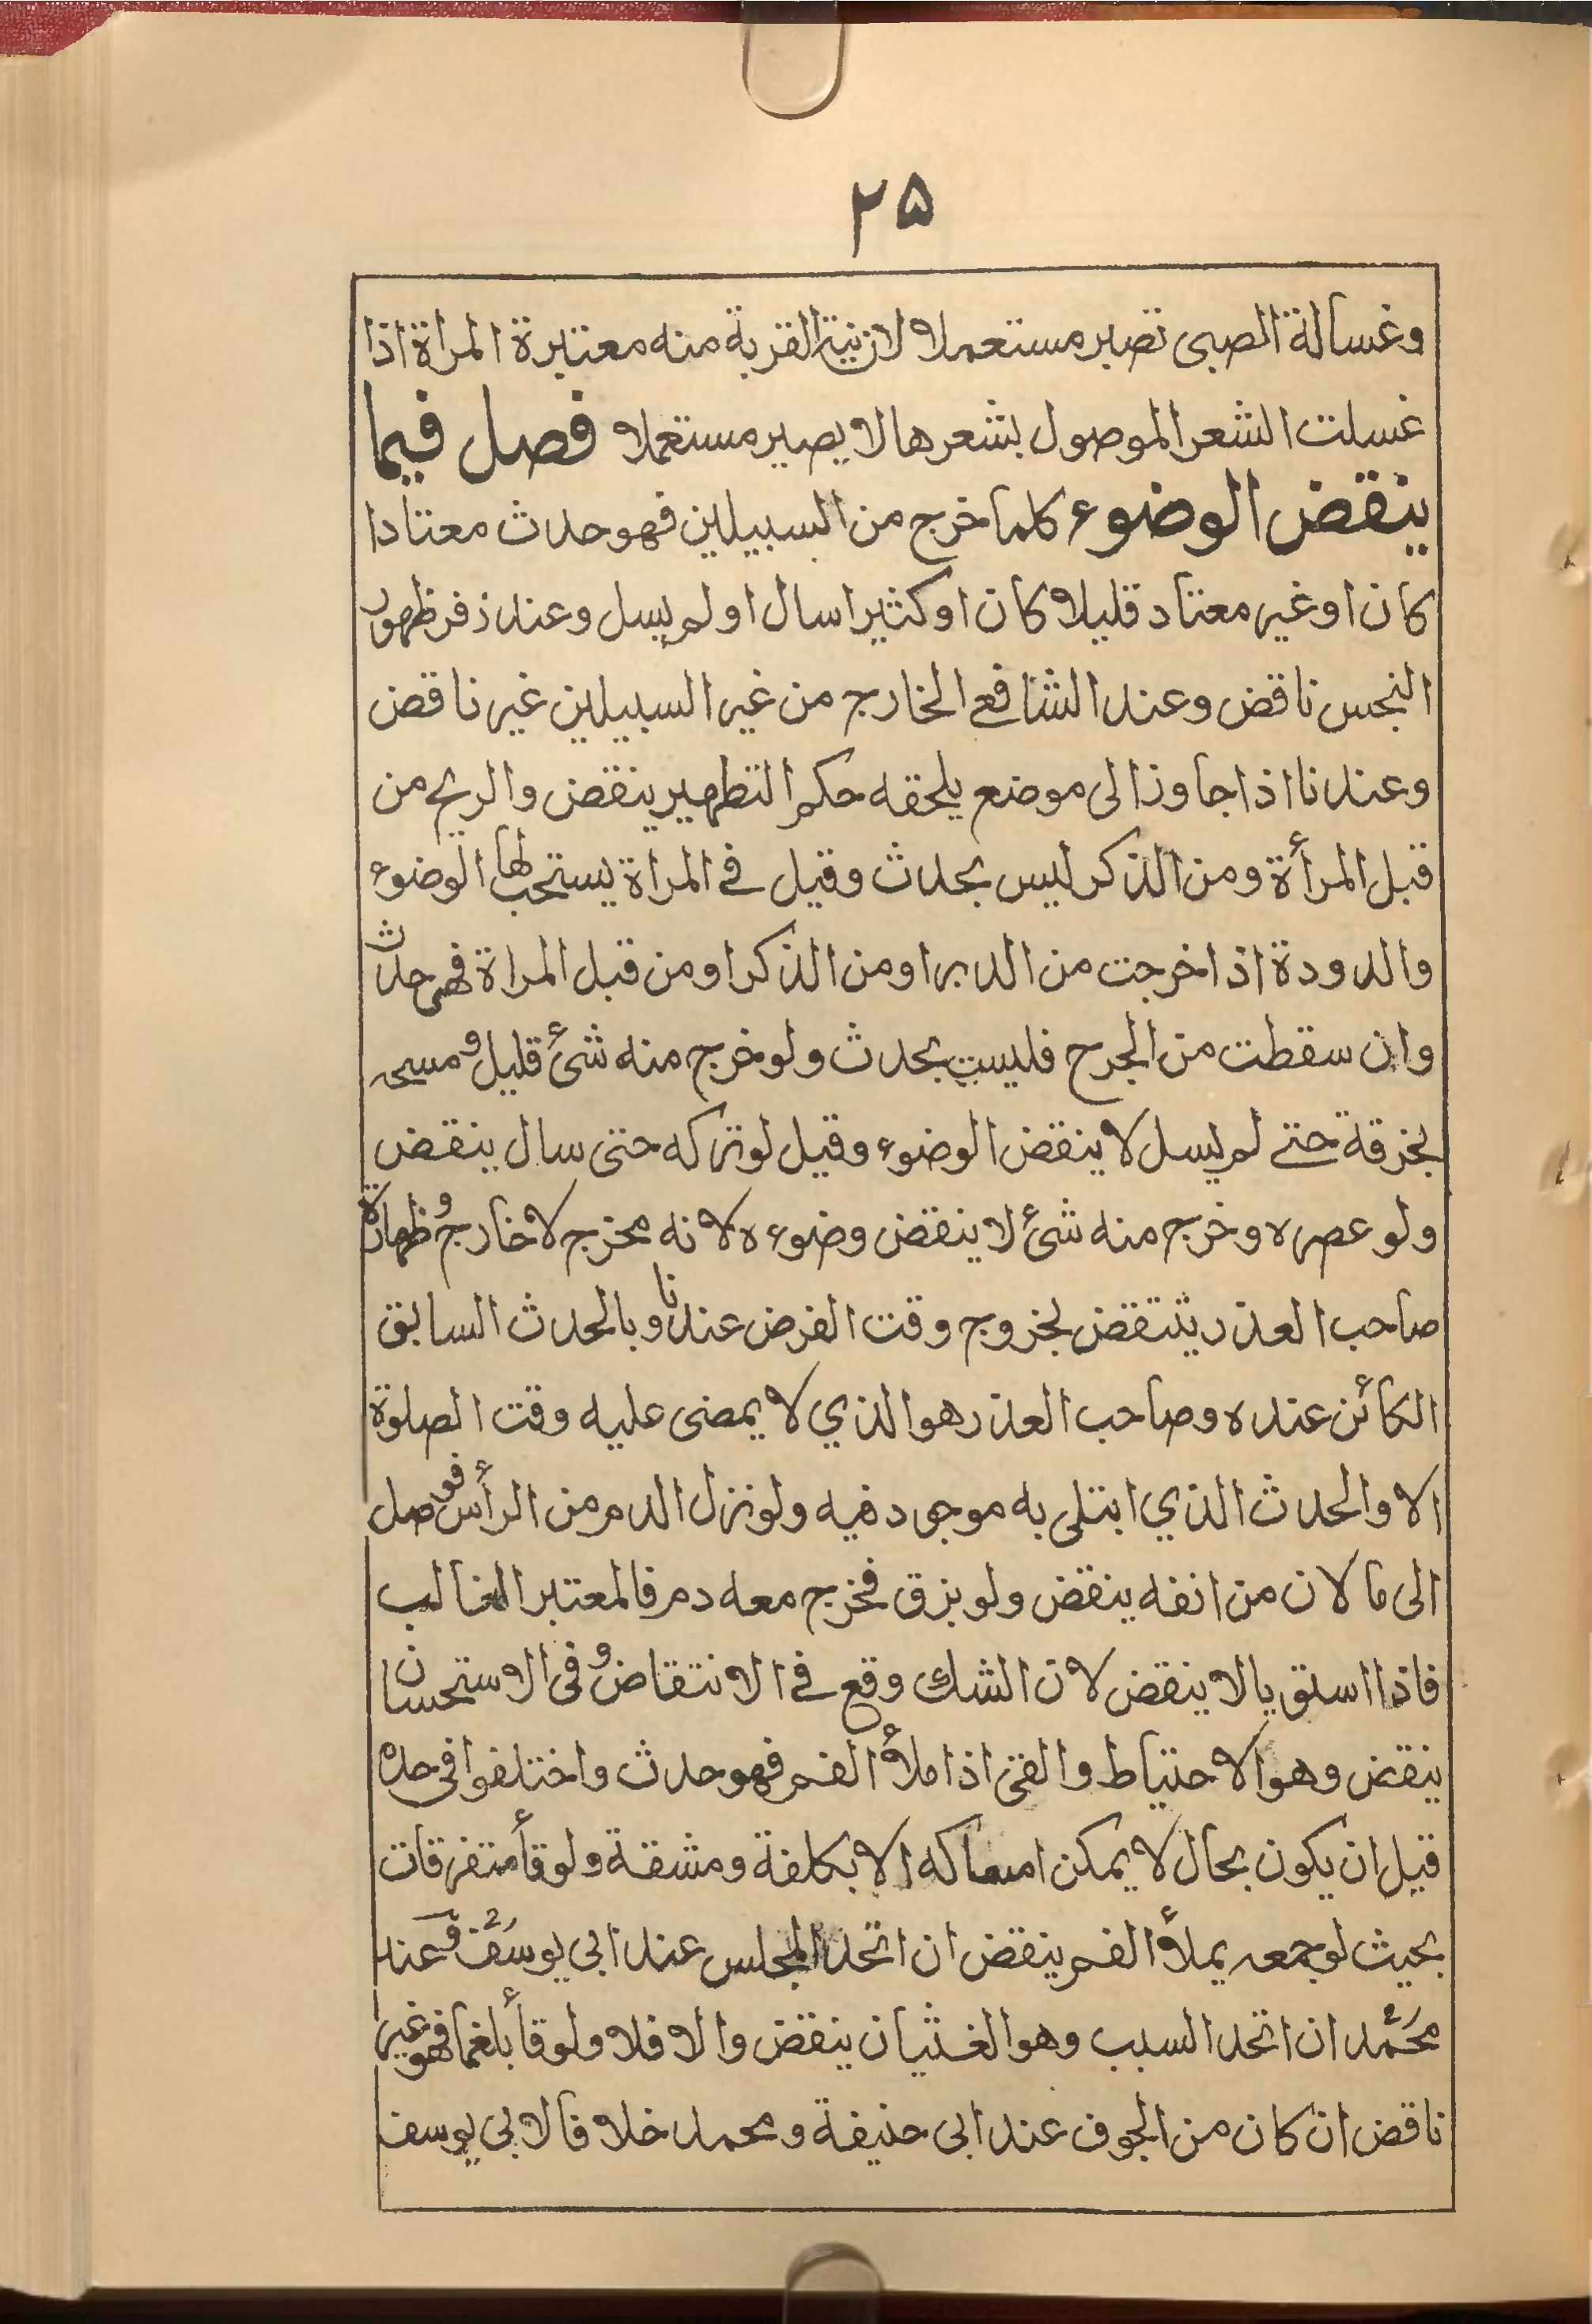 ٢٥
وغسالة الصبى تصير مستعملا لان نية القربة منه معتبرة المراة اذا
غسلت الشعر الموصول بشعرها لا يصير مستعملا فصل فيما
ينقض الوضوء كلما خرج من السبيلين فهو حدث معتادا
كان او غير معتاد قليلا كان او كثيرا سال او لم يسل وعند زفر ظهور
النجس ناقض وعند الشافعى الخارج من غير السبيلين غير ناقض
وعندنا اذا جاوز الى موضع يلحقه حكم التطهير ينقض والريح من
قبل المرأة ومن الذكر ليس بحدث وقيل فى المراة يستحب لها الوضوء
والدودة اذا خرجت من الدبر او من الذكر او من قبل المراة فهى حدث
وان سقطت من الجرح فليست بحدث ولو خرج منه شئ قليل ومسحه
بخرقة حتى لم يسل لا ينقض الوضوء وقيل لو تركه حتى سال ينقض
ولو عصره وخرج منه شئ لا ينقض وضوءه لانه مخرج لا خارج وطهارة
صاحب العذر ينتقض بخروج وقت الفرض عندنا وبالحدث السابق
الكائن عنده وصاحب العذر هو الذي لا يمضى عليه وقت الصلوة
الا والحدث الذي ابتلى به موجود فيه ولو نزل الدم من الرأس فوصل
الى ما لان من انفه ينقض ولو بزق فخرج معه دم فالمعتبر الغالب
فاذا استويا لا ينقض لان الشك وقع فى الانتقاض وفى الاستحسان
ينقض وهو الاحتياط والقئ اذا ملأ الفم فهو حدث واختلفوا فى حده
قيل ان يكون بحال لا يمكن امساكه الا بكلفة ومشقة ولو قأ متفرقات
بحيث لو جمعه يملأ الفم ينقض ان اتحد المجلس عند ابى يوسف وعند
محمد ان اتحد السبب وهو الغثيان ينقض والا فلا ولو قأ بلغما فهو غير
ناقض ان كان من الجوف عند ابى حنيفة ومحمد خلافا لابى يوسف